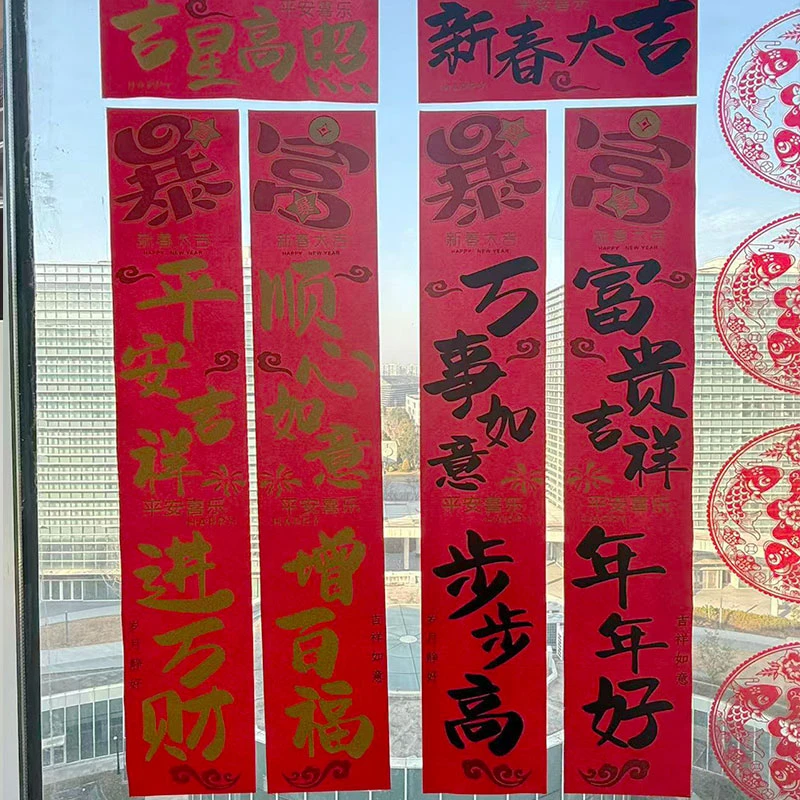 平安喜乐
吉星高照
平安喜乐
新春大吉
暴
新春大吉
HAPPY NEW YEAR
平安吉祥
平安喜乐
进万财
岁月静好
富
新春大吉
HAPPY NEW YEAR
顺心如意
平安喜乐
增百福
吉祥如意
暴
新春大吉
HAPPY NEW YEAR
万事如意
平安喜乐
步步高
岁月静好
富
新春大吉
HAPPY NEW YEAR
富贵吉祥
平安喜乐
年年好
吉祥如意